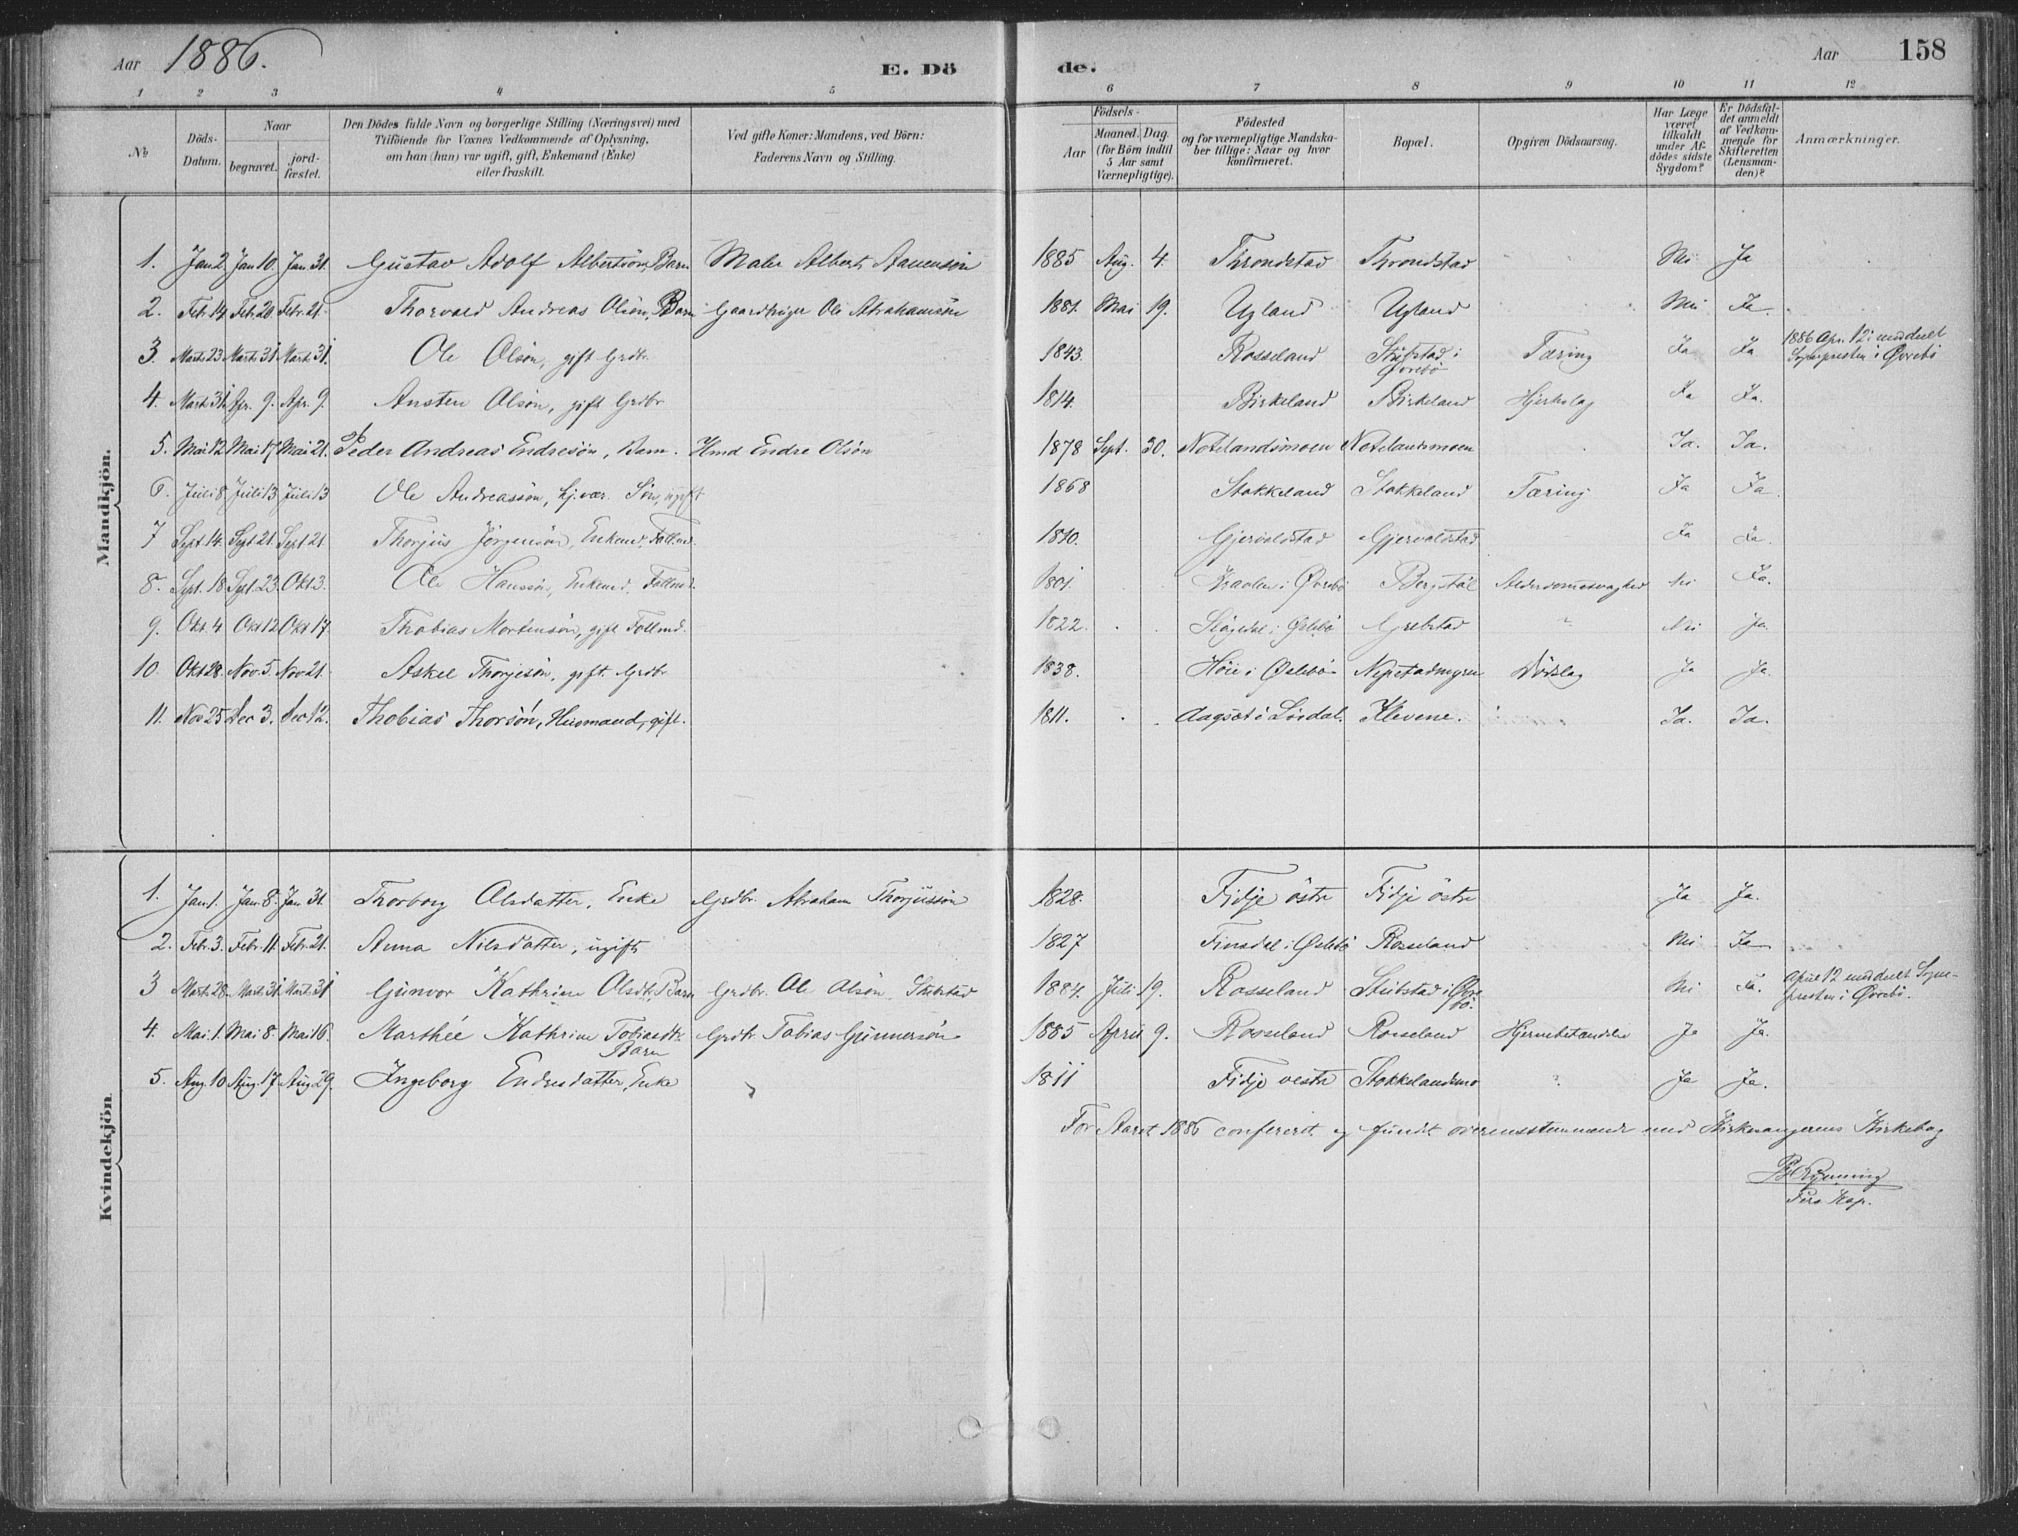 Aar 1886. E. Dö de. Aar 158
1 2 3 4 5 6 7 8 9 10 11 12
№ Döds-Datum. Naar begravet. jord-fæstet. Den Dödes fulde Navn og borgerlige Stilling (Næringsvei) med Tilföiende for Voxnes Vedkommende af Oplysning, om han (hun) var ugift, gift, Enkemand (Enke) eller fraskilt. Ved gifte Koner: Mandens, ved Börn: Faderens Navn og Stilling. Födsels- Aar Maaned. Dag. (for Börn indtil 5 Aar samt Værnepligtige). Födested og for værnepligtige Mandskaber tillige: Naar og hvor konfirmeret. Bopæl. Opgiven Dödsaarsag. Har Læge været tilkaldt under Afdödes sidste Sygdom? Er Dödsfaldet anmeldt af Vedkommende for Skifteretten (Lensmanden)? Anmærkninger.
Mandkjön.
1. Jan 2 Jan 10. Jan. 31. Gustav Adolf Albertsön Barn Maler Albert Aanensön 1885 Aug. 4. Throndstad Throndstad Nei Ja
2. Feb. 14 Feb. 20. Febr. 21. Thorvald Andreas Olsön, Barn Gaardbruger Ole Abrahamsön 1881. Mai 19. Ugland Ugland Nei Ja
3. Marts 23 Marts 31 Mart. 31. Ole Olsön, gift Grdbr. 1843. Rosseland Stubstad i Øvrebö Tæring Ja Ja 1886 Apr. 12 meddelt Sognepresten i Øvrebö
4. Marts 31. Apr. 9. Apr. 9. Ansten Olsön, gift Grdbr 1814. Birkeland Birkeland Hjerteslag Ja Ja.
5. Mai 12 Mai 17 Mai 21. Peder Andreas Endresön, Barn. Hmd Endre Olsön 1878 Sept. 30. Notelandsmoen Notelandsmoen Ja. Ja.
6. Juli 8 Juli 13 Juli 13 Ole Andreassön, hj. vær. Sön, ugift 1868 Stokkeland Stokkeland Tæring Ja Ja.
7 Sept. 14. Sept 21. Sept 21 Thorjus Jörgensön, Enkemd, Follmd. 1810. Gjervoldstad Gjervoldstad Ja Ja.
8. Sept. 18 Sept. 23. Okt 3. Ole Hanssön, Enkemd, Follmd. 1801. i Øvrebö Bergstöl Alderdomssvaghed Nei Ja.
9. Okt. 4 Okt 12 Okt 17. Thobias Mortensön, gift Follmd. 1822. i Øslebö Grebstad " Nei ja.
10. Okt 28. Nov. 5 Nov 21. Askel Thorjesön, gift Grdbr 1838. Höie i Øslebö Nepstadmyren Dödslag Ja Ja.
11. Nov 25 Dec 3. Dec 12. Thobias Thorsön, Husmand, gift. 1811. Aagset i Lördal. Klevene. Ja. Ja.
Kvindekjön.
1. Jan 1. Jan. 8. Jan 31. Thorborg Olsdatter, Enke Grdbr. Abraham Thorjussön 1828. Fidje östre Fidje östre Ja Ja.
2. Febr. 3. Febr. 11. Febr. 21. Anna Nilsdatter, ugift 1827 Finsdal i Øslebö Rosseland Nei Ja
3 Marts 28. Marts 31. Marts 31 Gunvor Kathrine Olsdt. Barn Grdbr. Ole Olsön, Stubstad 1884. Juli 19. Rosseland Stubstad i Øvrebö. Nei Ja. April 12 meddelt Sognepresten i Øvrebö.
4. Mai. 1. Mai 8. Mai 16. Marthée Kathrine Tobiasdt. Barn Grdbr. Tobias Gunnersön 1885 April 9. Rosseland Rosseland Hjernebetændelse Ja Ja.
5. Aug. 10 Aug. 17. Aug. 29. Ingeborg Endresdatter, Enke 1811 Fidje vestre Stokkelandsmo Ja Ja.
For Aaret 1886 confereret og fundet overensstemmende med Kirkesangerens Kirkebog
Pers. Kap.